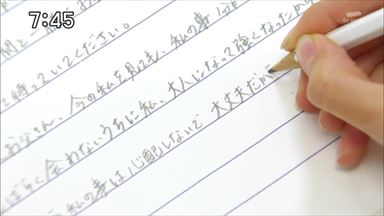 7:45
待っていてください。
お父さん、今の私を見ても、私の事
しばらく会わないうちに私、大人になって強くなったから
私の事は心配しないで 大丈夫だか